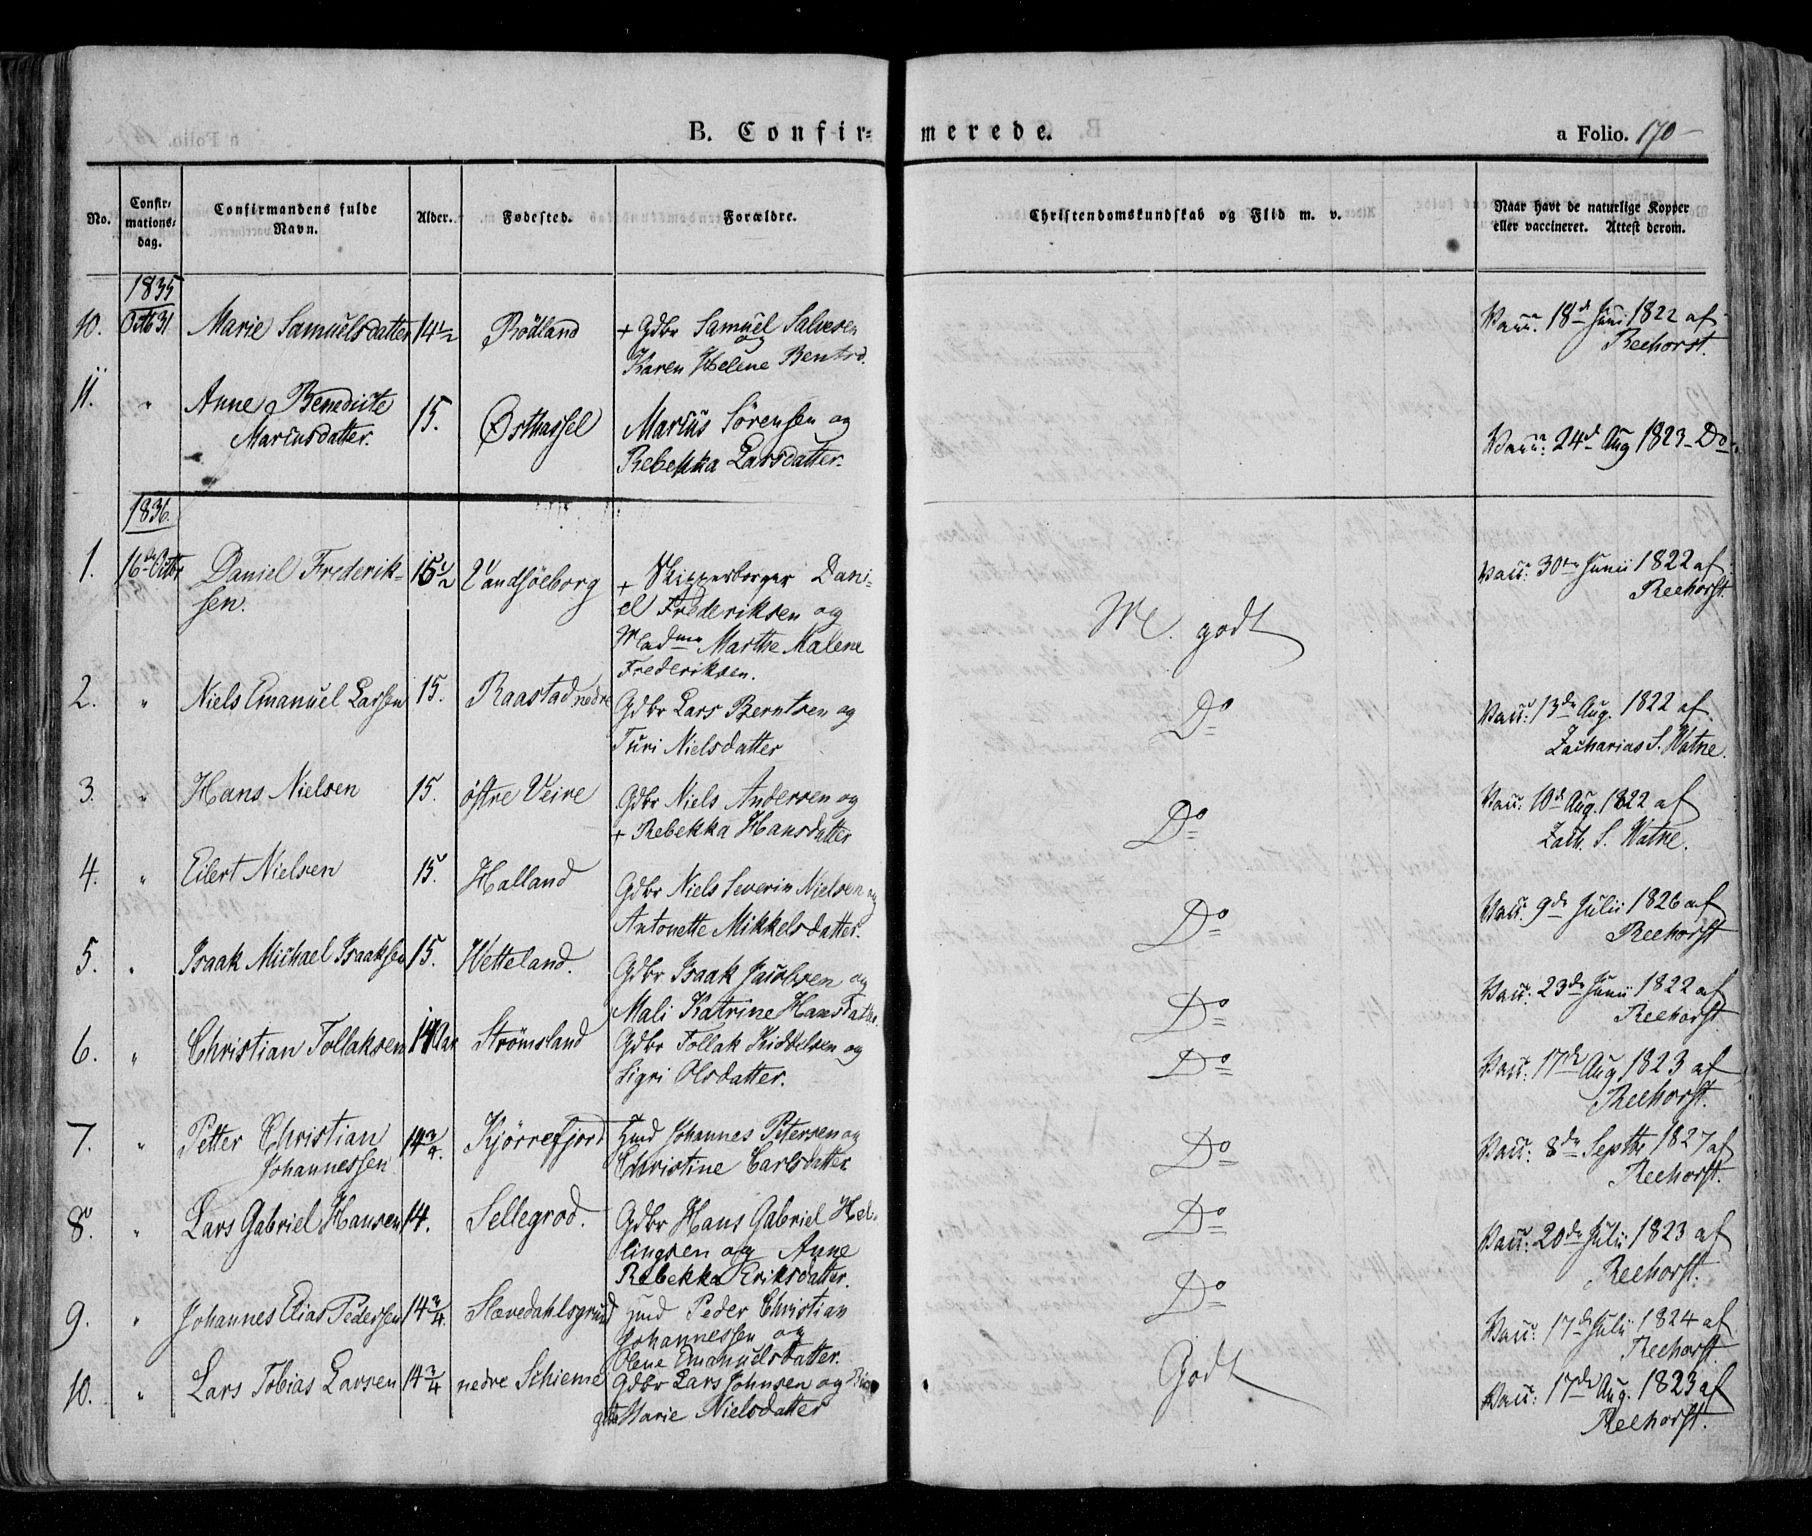 B. Confir= merede.
a Folio. 170
No.
Confir-
mations-
dag.
Confirmandens fulde
Navn.
Alder.
Fødested.
Forældre.
Christendomskundskab og Flid m. v.
Naar havt de naturlige Kopper
eller vaccineret. Attest derom.
1835
10. Octb 31 Marie Samuelsdatter 14 1/2 Bödland + Gdbr Samuel Salvesen
og
Karen Helene Bentsd.
Vacc: 18d Juni 1822 af
Reehorst.
11. " Anne Benedicte
Marcusdatter. 15. Østhassel Marcus Sörensen og
Rebekka Larsdatter.
Vacc: 24d Aug 1823 - Do
1836.
1. 16de Octbr Daniel Frederik-
sen. 15 1/2 Vandsöeborg + Skipperborger Dani-
el Frederiksen og
Madme Marthe Malene
Frederiksen.
M. godt
Vacc: 30te Junii 1822 af
Reehorst.
2. " Niels Emanuel Larsen 15. Raastad nedre Gdbr Lars Berntsen og
Turi Nielsdatter
Do
Vacc: 13de Aug. 1822 af
Zacharias S. Watne.
3. " Hans Nielsen 15. østre Veire Gdbr Niels Andersen og
+ Rebekka Hansdatter
Do
Vacc: 10d Aug. 1822 af
Zach. S. Watne.
4. " Eilert Nielsen 15. Halland Gdbr Niels Severin Nielsen og
Antonette Mikkelsdatter.
Do
Vacc: 9de Julii 1826 af
Reehorst
5. " Isaak Michael Isaaksen 15. Wetteland. Gdbr Isaak Jacobsen og
Mali Katrine Hansdatter.
Do
Vacc: 23de Junii 1822 af
Reehorst.
6. " Christian Tollaksen 14 Aar Strömsland Gdbr Tollak Kiddelsen og
Sigri Olsdatter.
Do
Vacc: 17de Aug 1823 af
Reehorst.
7. " Petter Christian
Johannessen 14 3/4. Kjörrefjord Huusmd Johannes Petersen og
Christine Carlsdatter
Do
Vacc: 8de Septbr 1827 af
Reehorst.
8. " Lars Gabriel Hansen 14. Sellegrod. Gdbr Hans Gabriel Hel-
lingsen og Anne
Rebekka Eriksdatter.
Do
Vacc: 20de Julii 1823 af
Reehorst.
9. " Johannes Elias Pedersen 14 3/4. Slævedahlsgrund Huusmd Peder Christian
Johannessen og
Olene Emanuelsdatter.
Do
Vacc: 17de Julii 1824 af
Reehorst.
10. " Lars Tobias Larsen 14 3/4 nedre Schieme Gdbr Lars Johnsen og
Marie Nielsdatter
Godt
Vacc: 17de Aug. 1823 af
Reehorst.